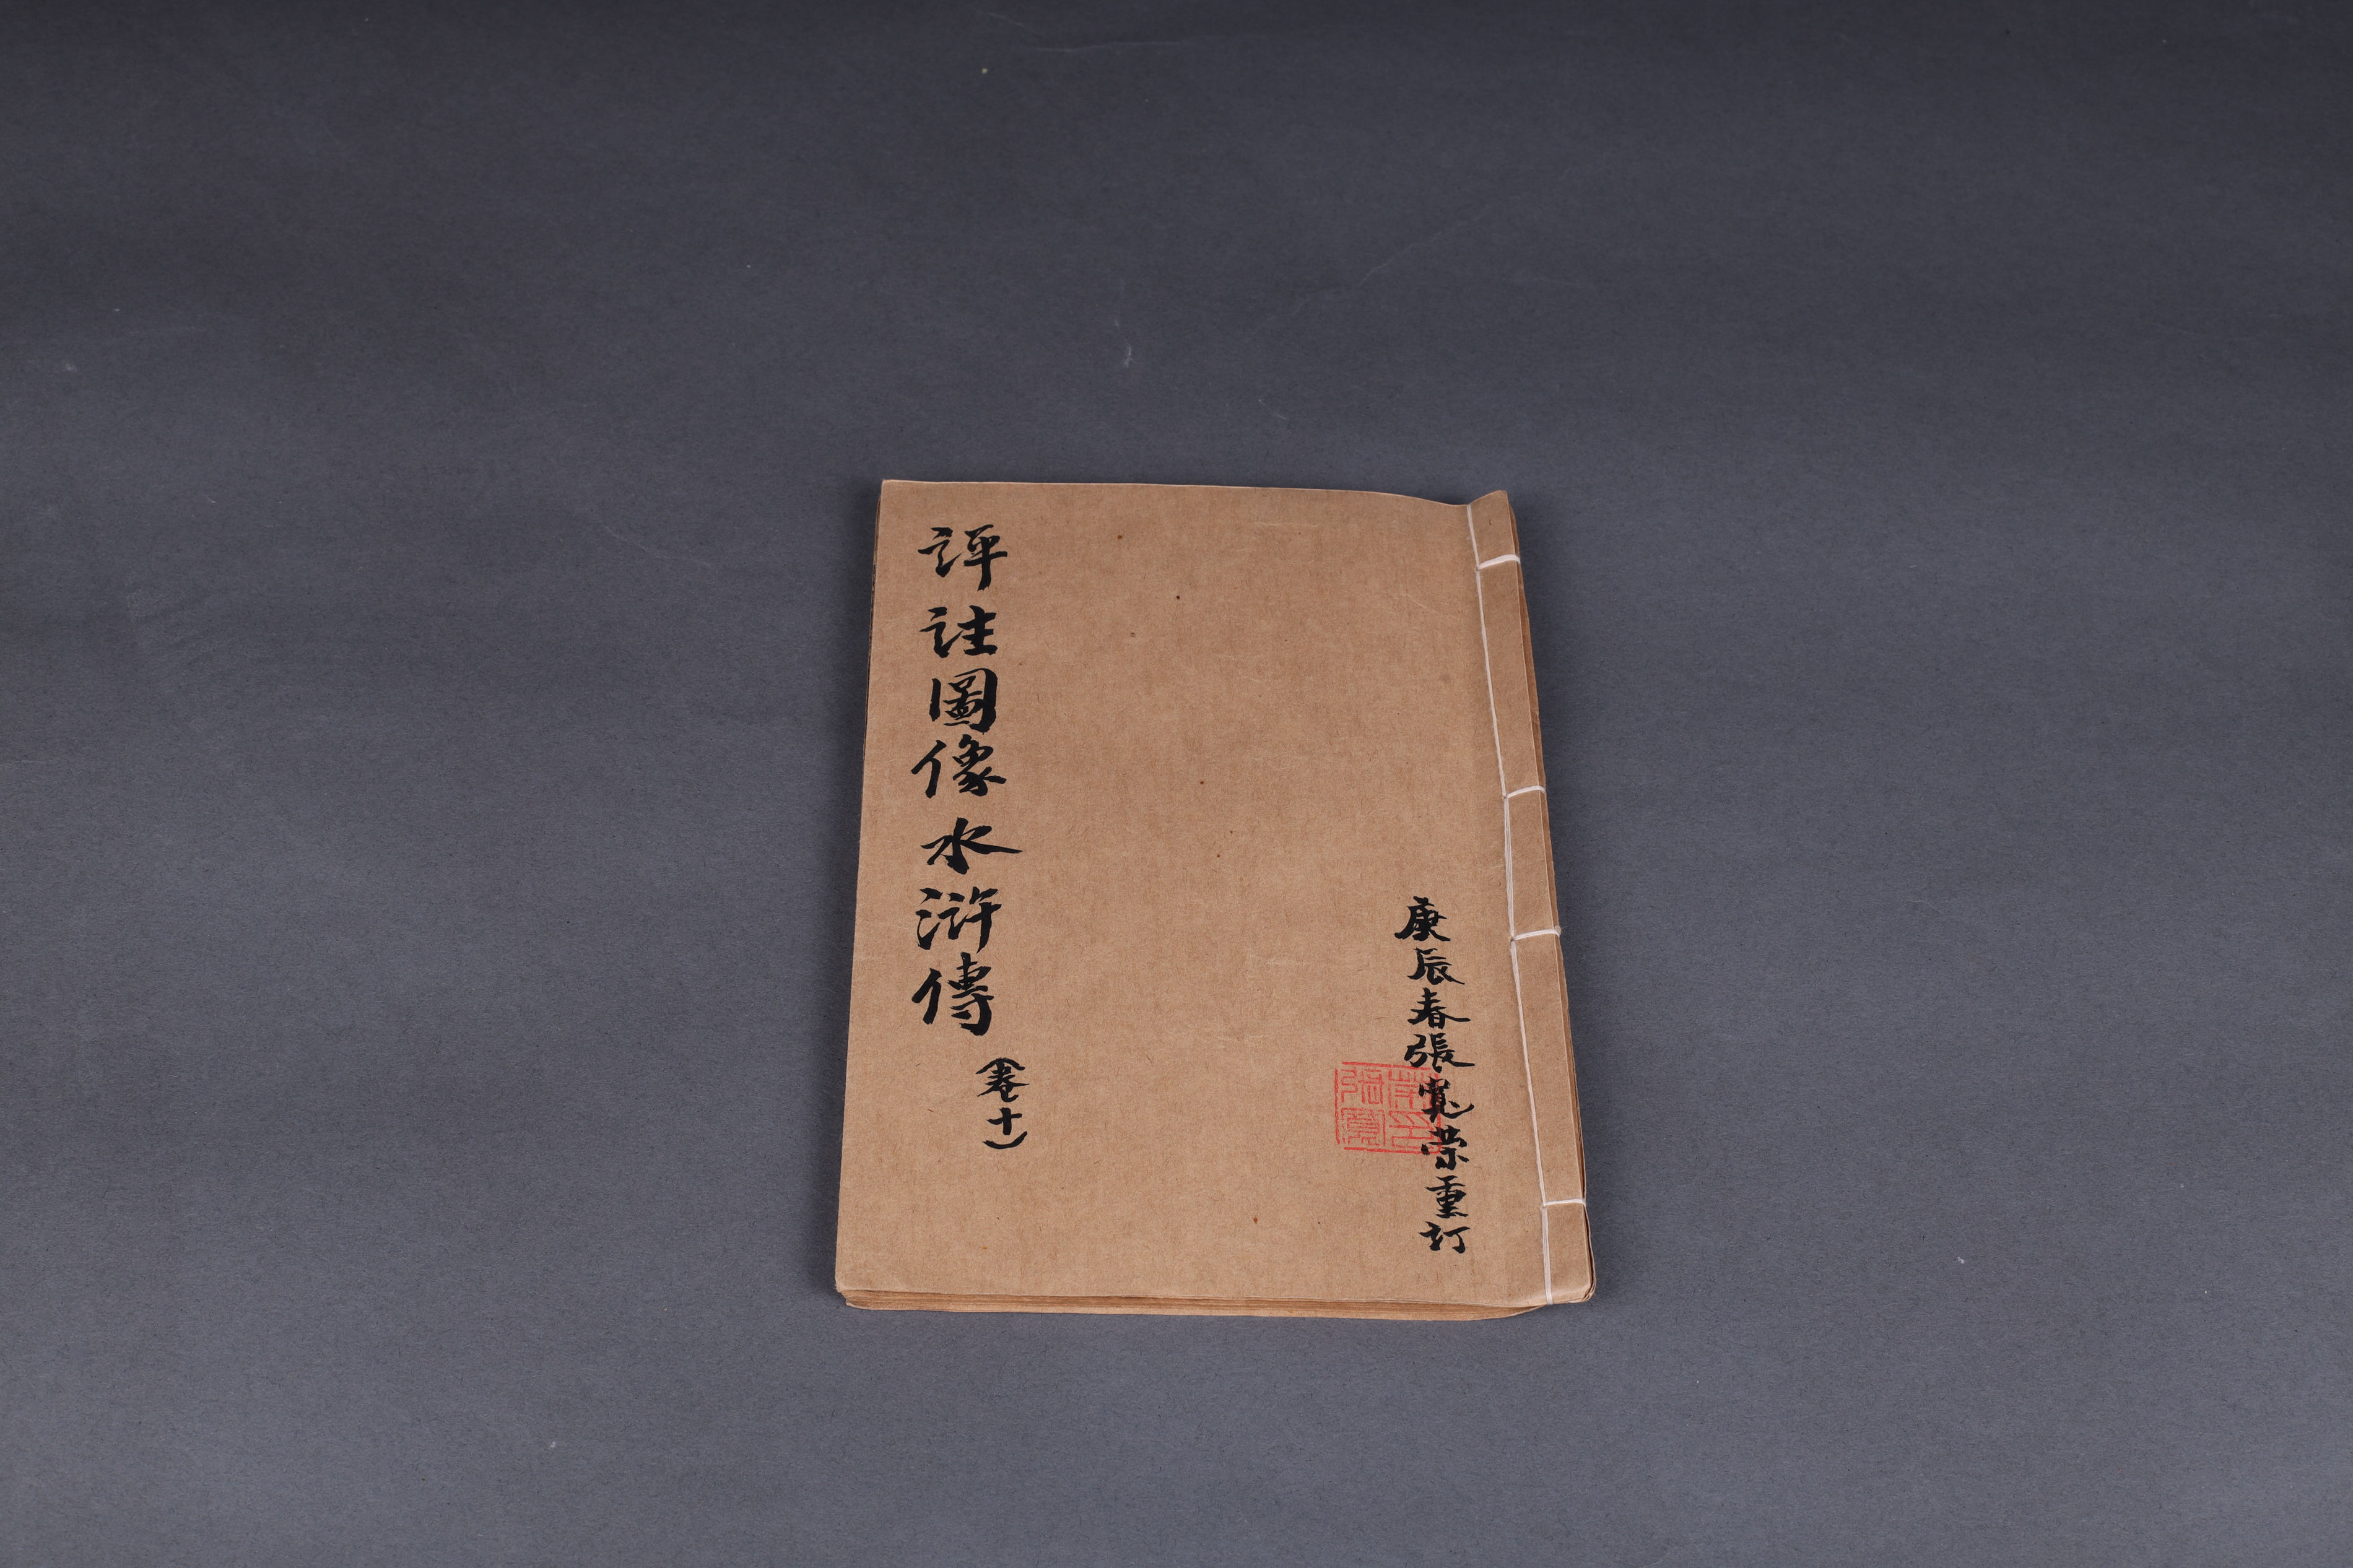 庚辰春張寬榮重訂
評註圖像水滸傳
（卷十）